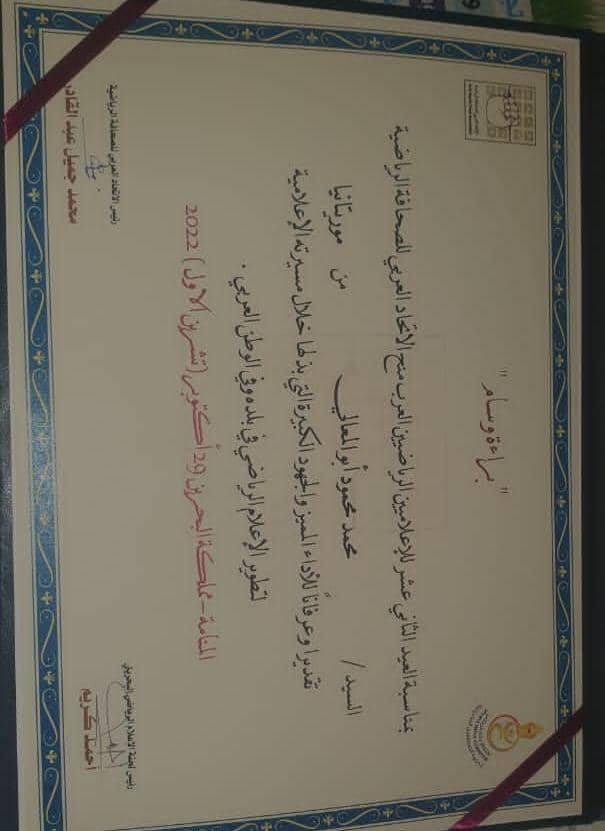 "براءة وسام"
بمناسبة العيد الثاني عشر للإعلاميين الرياضيين العرب منح الاتحاد العربي للصحافة الرياضية
السيد / محمد محمود أبو المعالي من موريتانيا
تقديرا وعرفاناً للأداء المميز والجهود الكبيرة التي بذلها خلال مسيرته الإعلامية
لتطوير الإعلام الرياضي في بلده وفي الوطن العربي .
المنامة - مملكة البحرين (29 أكتوبر (تشرين الاول) 2022
رئيس لجنة الاعلام الرياضي البحريني
احمد كريم
رئيس الاتحاد العربي للصحافة الرياضية
محمد جميل عبد القادر